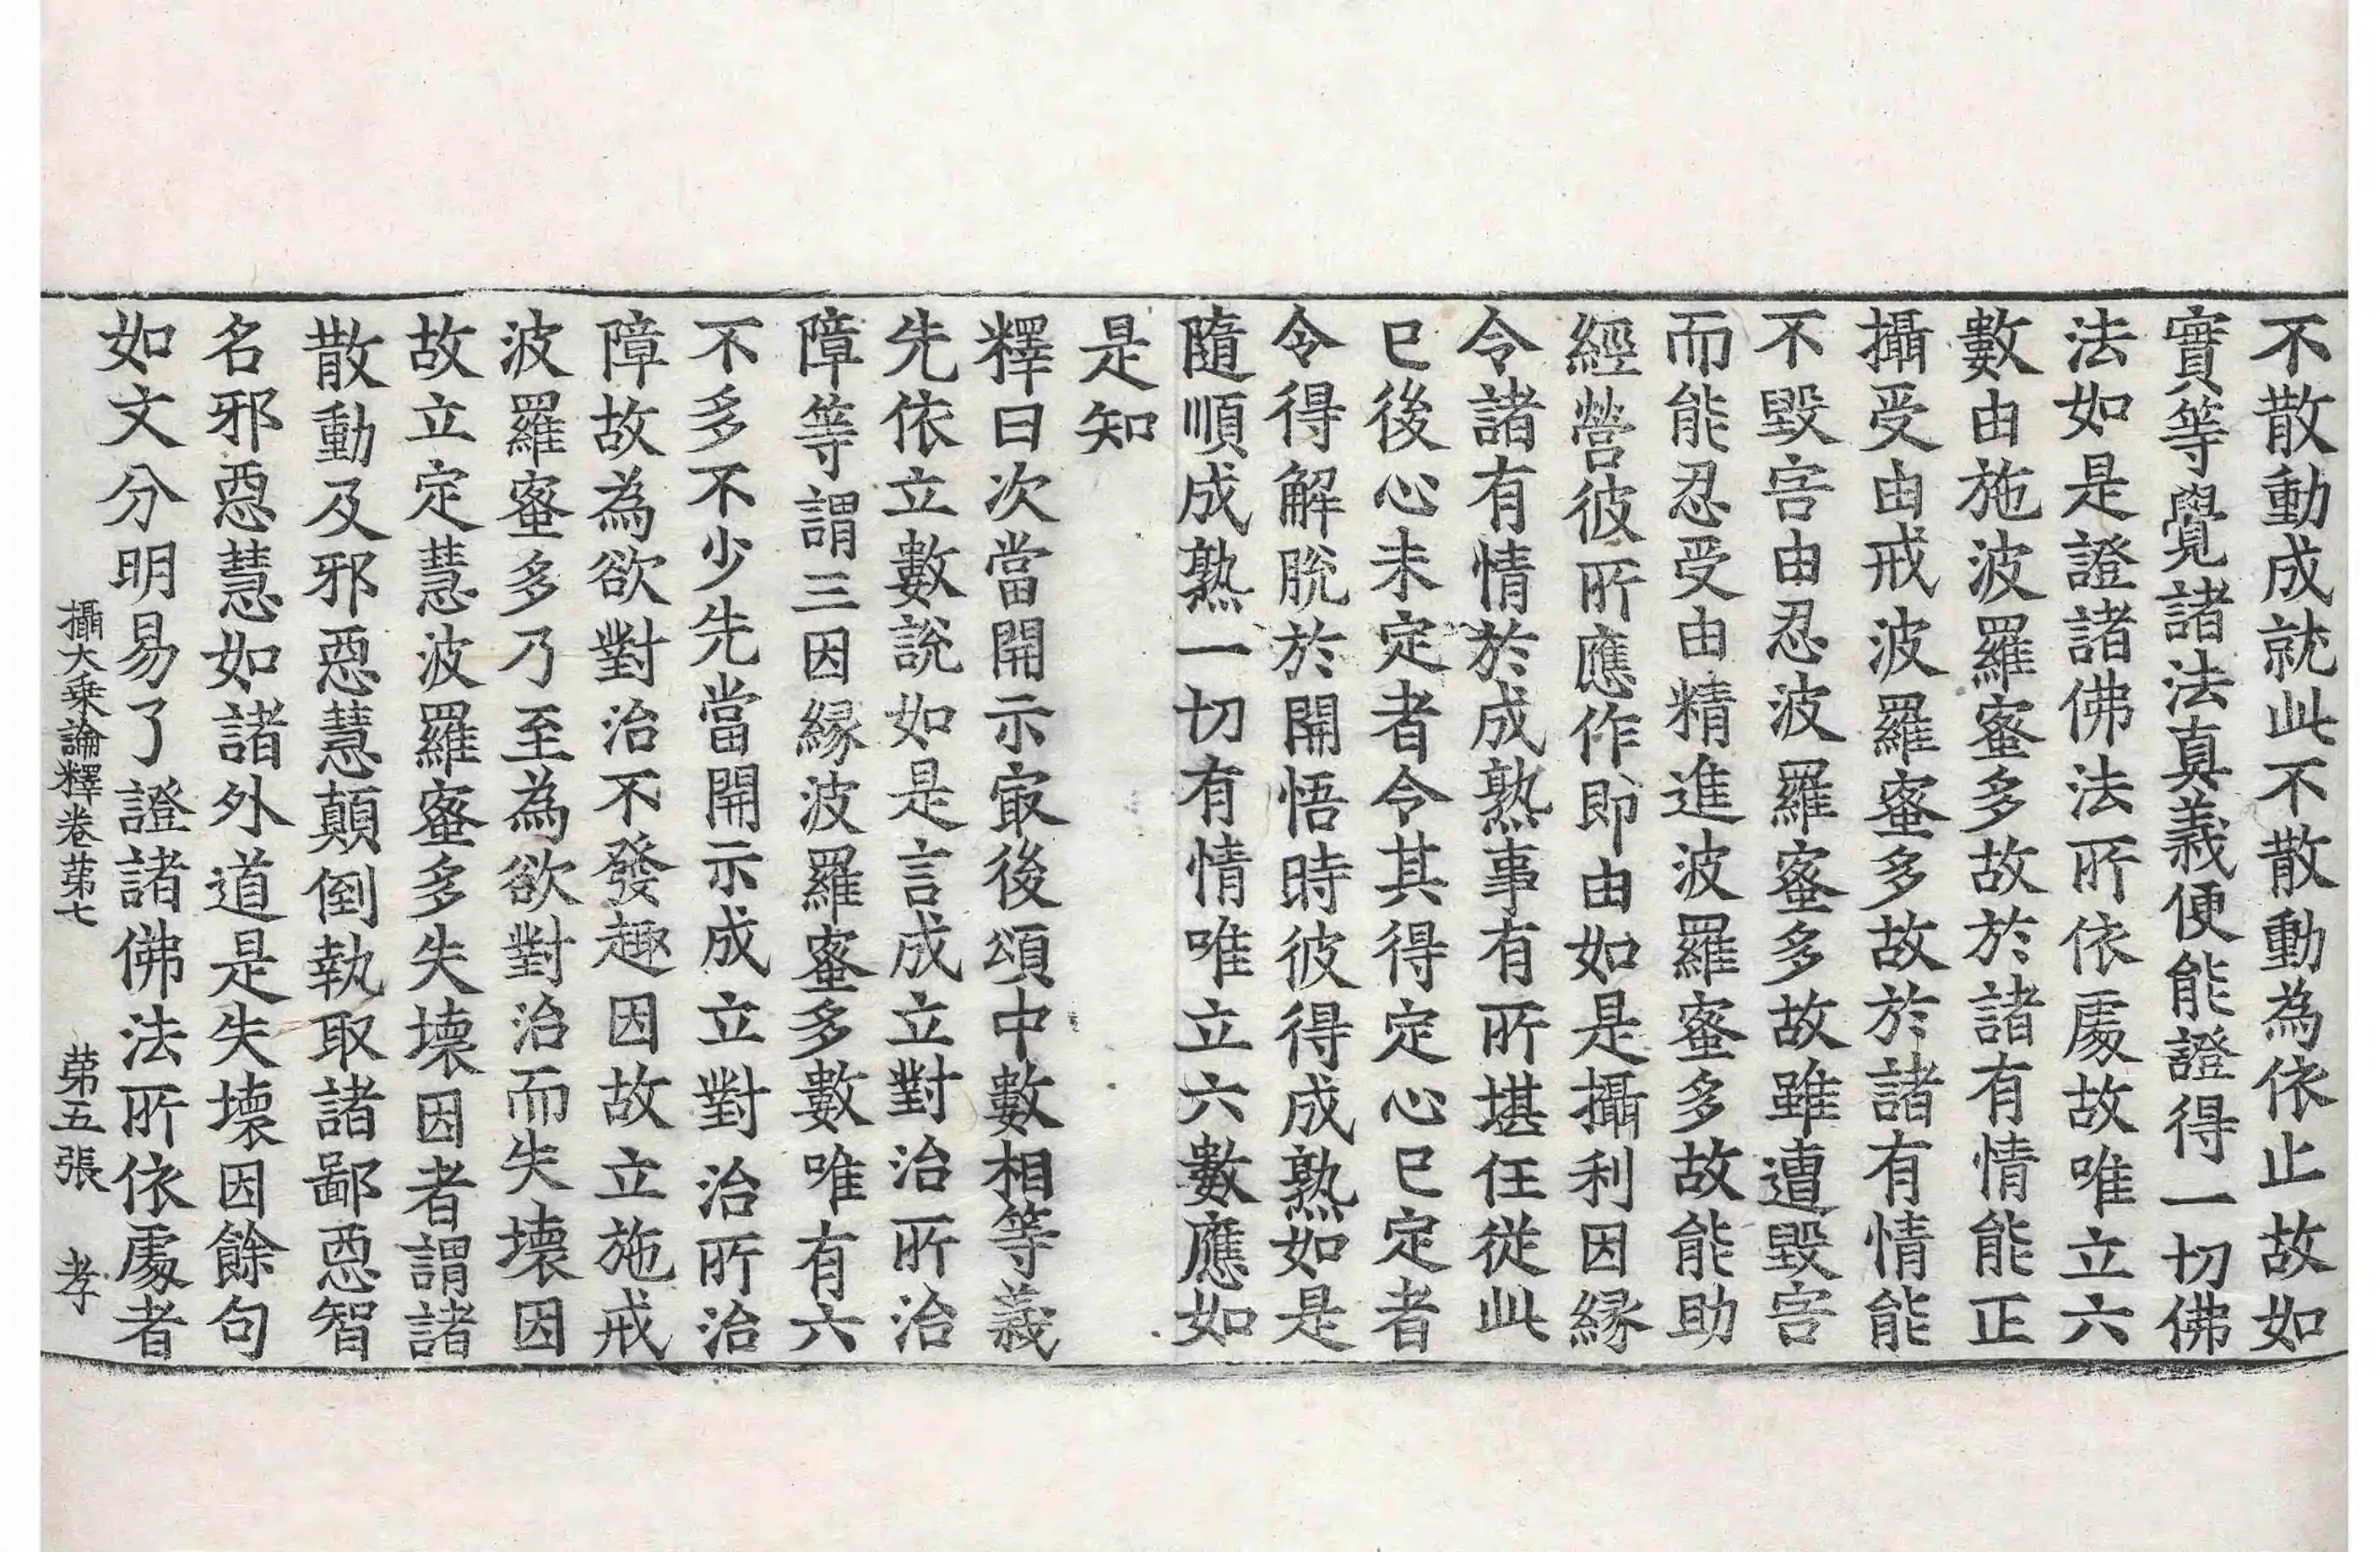 不散動成就此不散動為依止故如
實等覺諸法真義便能證得一切佛
法如是證諸佛法所依處故唯立六
數由施波羅蜜多故於諸有情能正
攝受由戒波羅蜜多故於諸有情能
不毀害由忍波羅蜜多故雖遭毀害
而能忍受由精進波羅蜜多故能助
經營彼所應作即由如是攝利因緣
令諸有情於成熟事有所堪任從此
已後心未定者令其得定心已定者
令得解脫於開悟時彼得成熟如是
隨順成熟一切有情唯立六數應如
是知
釋曰次當開示㝡後頌中數相等義
先依立數說如是言成立對治所治
障等謂三因緣波羅蜜多數唯有六
不多不少先當開示成立對治所治
障故為欲對治不發趣因故立施戒
波羅蜜多乃至為欲對治而失壞因
故立定慧波羅蜜多失壞因者謂諸
散動及邪惡慧顛倒執取諸鄙惡智
名邪惡慧如諸外道是失壞因餘句
如文分明易了證諸佛法所依處者
攝大乘論釋卷第七 第五張 孝